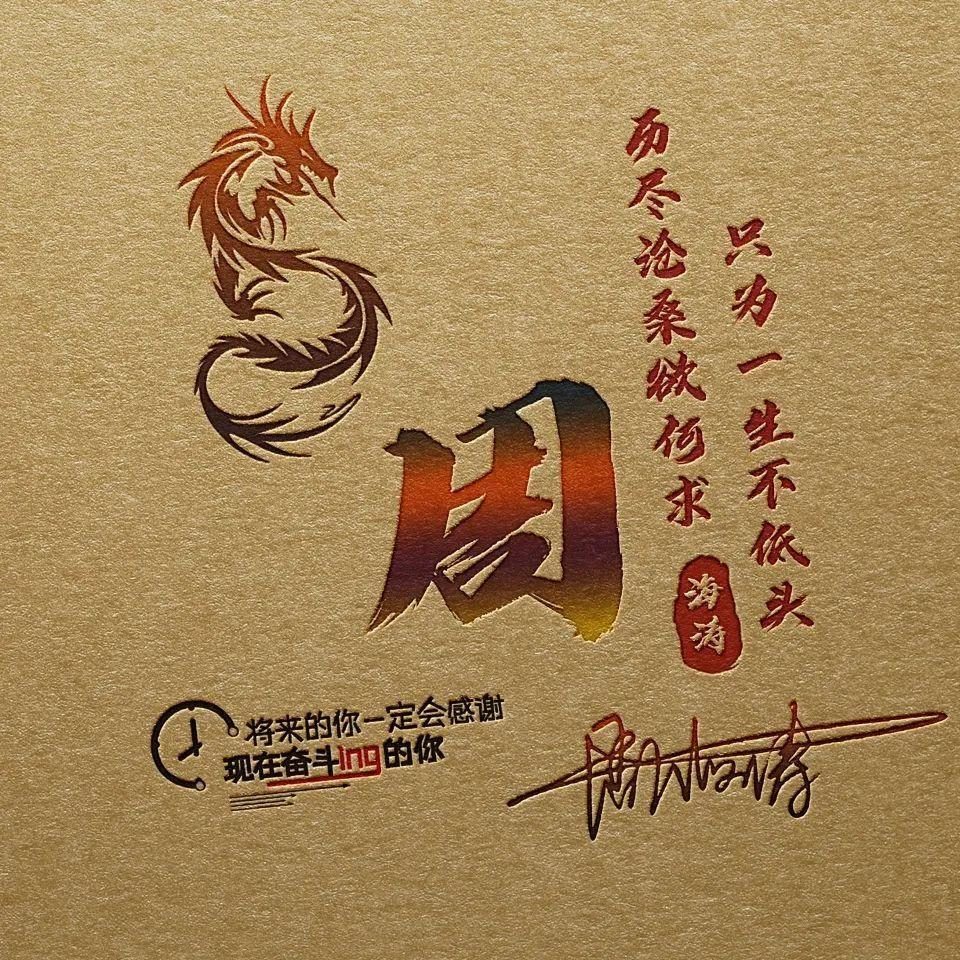 历尽沧桑欲何求
只为一生不低头
海涛
周
将来的你一定会感谢
现在奋斗ing的你
周海涛